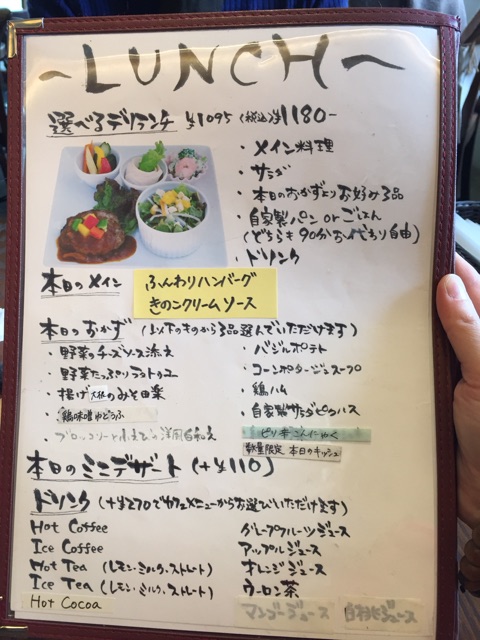 ~LUNCH~
選べるデリランチ ¥1095 (税込¥1180-
・メイン料理
・サラダ
・本日のおかずよりお好み3品
・自家製パン orごはん
(どちらも90分おかわり自由)
・ドリンク
本日のメイン
ふんわりハンバーグ
きのこクリームソース
本日のおかず (以下のものから3品選んでいただけます)
・野菜のチーズソース添え
・野菜たっぷりラタトゥユ
・揚げ大根のみそ田楽
・鶏味噌ゆどうふ
・バジルポテト
・コーンポタージュスープ
・鶏ハム
・自家製サラダピクルス
ピリ辛こんにゃく
数量限定 本日のキッシュ
本日のミニデザート (+¥110)
ドリンク (+¥270でカフェメニューからお選びいただけます)
Hot Coffee
Ice Coffee
Hot Tea (レモン・ミルク・ストレート)
Ice Tea (レモン・ミルク・ストレート)
Hot Cocoa
グレープフルーツジュース
アップルジュース
オレンジジュース
ウーロン茶
マンゴージュース